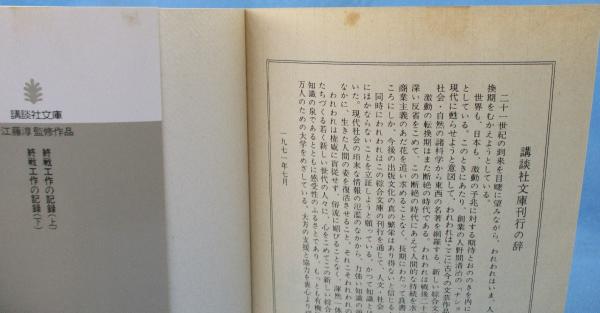 講談社文庫
江藤淳 監修作品
終戦工作の記録(上)
終戦工作の記録(下)
講談社文庫刊行の辞
二十一世紀の到来を目睫に望みながら、われわれはいま、人
換期をむかえようとしている。
世界も、日本も、激動の予兆に対する期待とおののきを内に
としている。このときにあたり、創業の人野間清治の「ナショ
現代に甦らせようと意図して、われわれはここに古今の文芸作品
社会・自然の諸科学から東西の名著を網羅する、新しい綜合文
激動の転換期はまた断絶の時代である。われわれは戦後二十
深い反省をこめて、この断絶の時代にあえて人間的な持続を求
商業主義のあだ花を追い求めることなく、長期にわたって良書
ころにしか、今後の出版文化の真の繁栄はあり得ないと信じる
同時にわれわれはこの綜合文庫の刊行を通じて、人文・社会・
にほかならないことを立証しようと願っている。かつて知識とは
いた。現代社会の瑣末な情報の氾濫のなかから、力強い知識の源
なかに、生きた人間の姿を復活させること。それこそわれわれの
われわれは権威に盲従せず、俗流に媚びることなく、渾然一体
たちづくる若く新しい世代の人々に、心をこめてこの新しい綜合
知識の泉であるとともに感受性のふるさとであり、もっとも有機
万人のための大学をめざしている。大方の支援と協力を衷心より
一九七一年七月